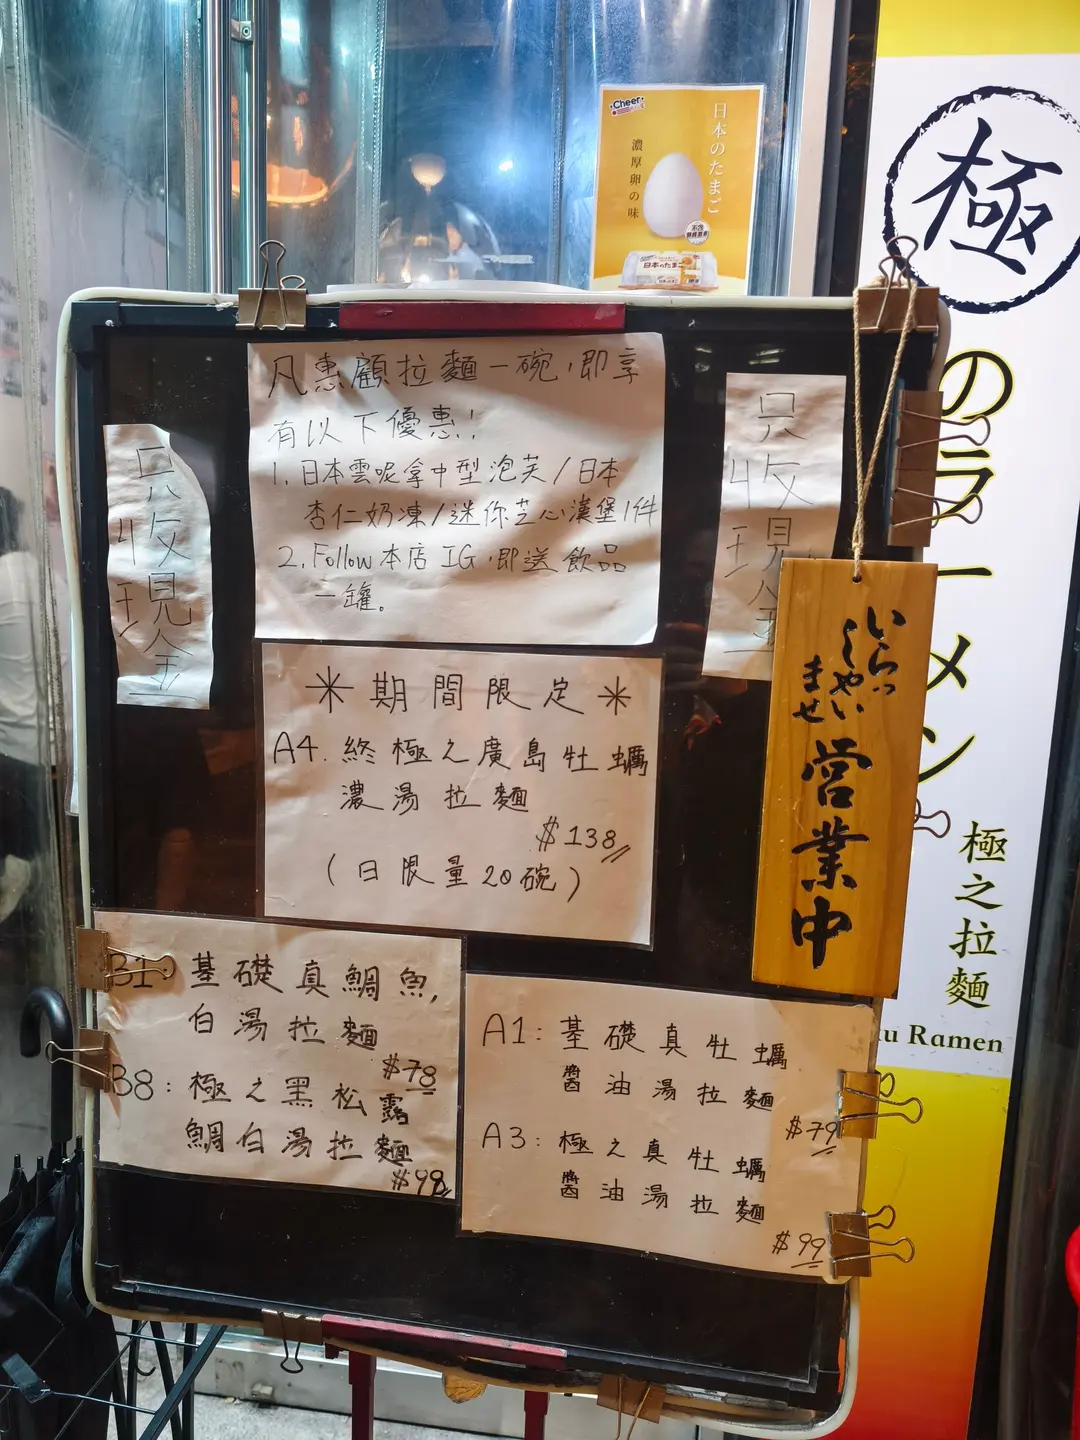 Cheer
日本のたまご
濃厚卵の味
日本のたまご
極
のラーメン
極之拉麵
u Ramen
凡惠顧拉麵一碗,即享
有以下優惠!
1. 日本雲呢拿中型泡芙/日本
杏仁奶凍/迷你芝心漢堡1件
2. Follow本店IG,即送飲品
一罐。
只收現金
只收現金
いらっ
しゃい
ませ
営業中
*期間限定*
A4. 終極之廣島牡蠣
濃湯拉麵
$138
(日限量20碗)
B1: 基礎真鯛魚,
白湯拉麵
$78
B8: 極之黑松露
鯛白湯拉麵
$98
A1: 基礎真牡蠣
醬油湯拉麵
$79
A3: 極之真牡蠣
醬油湯拉麵
$99